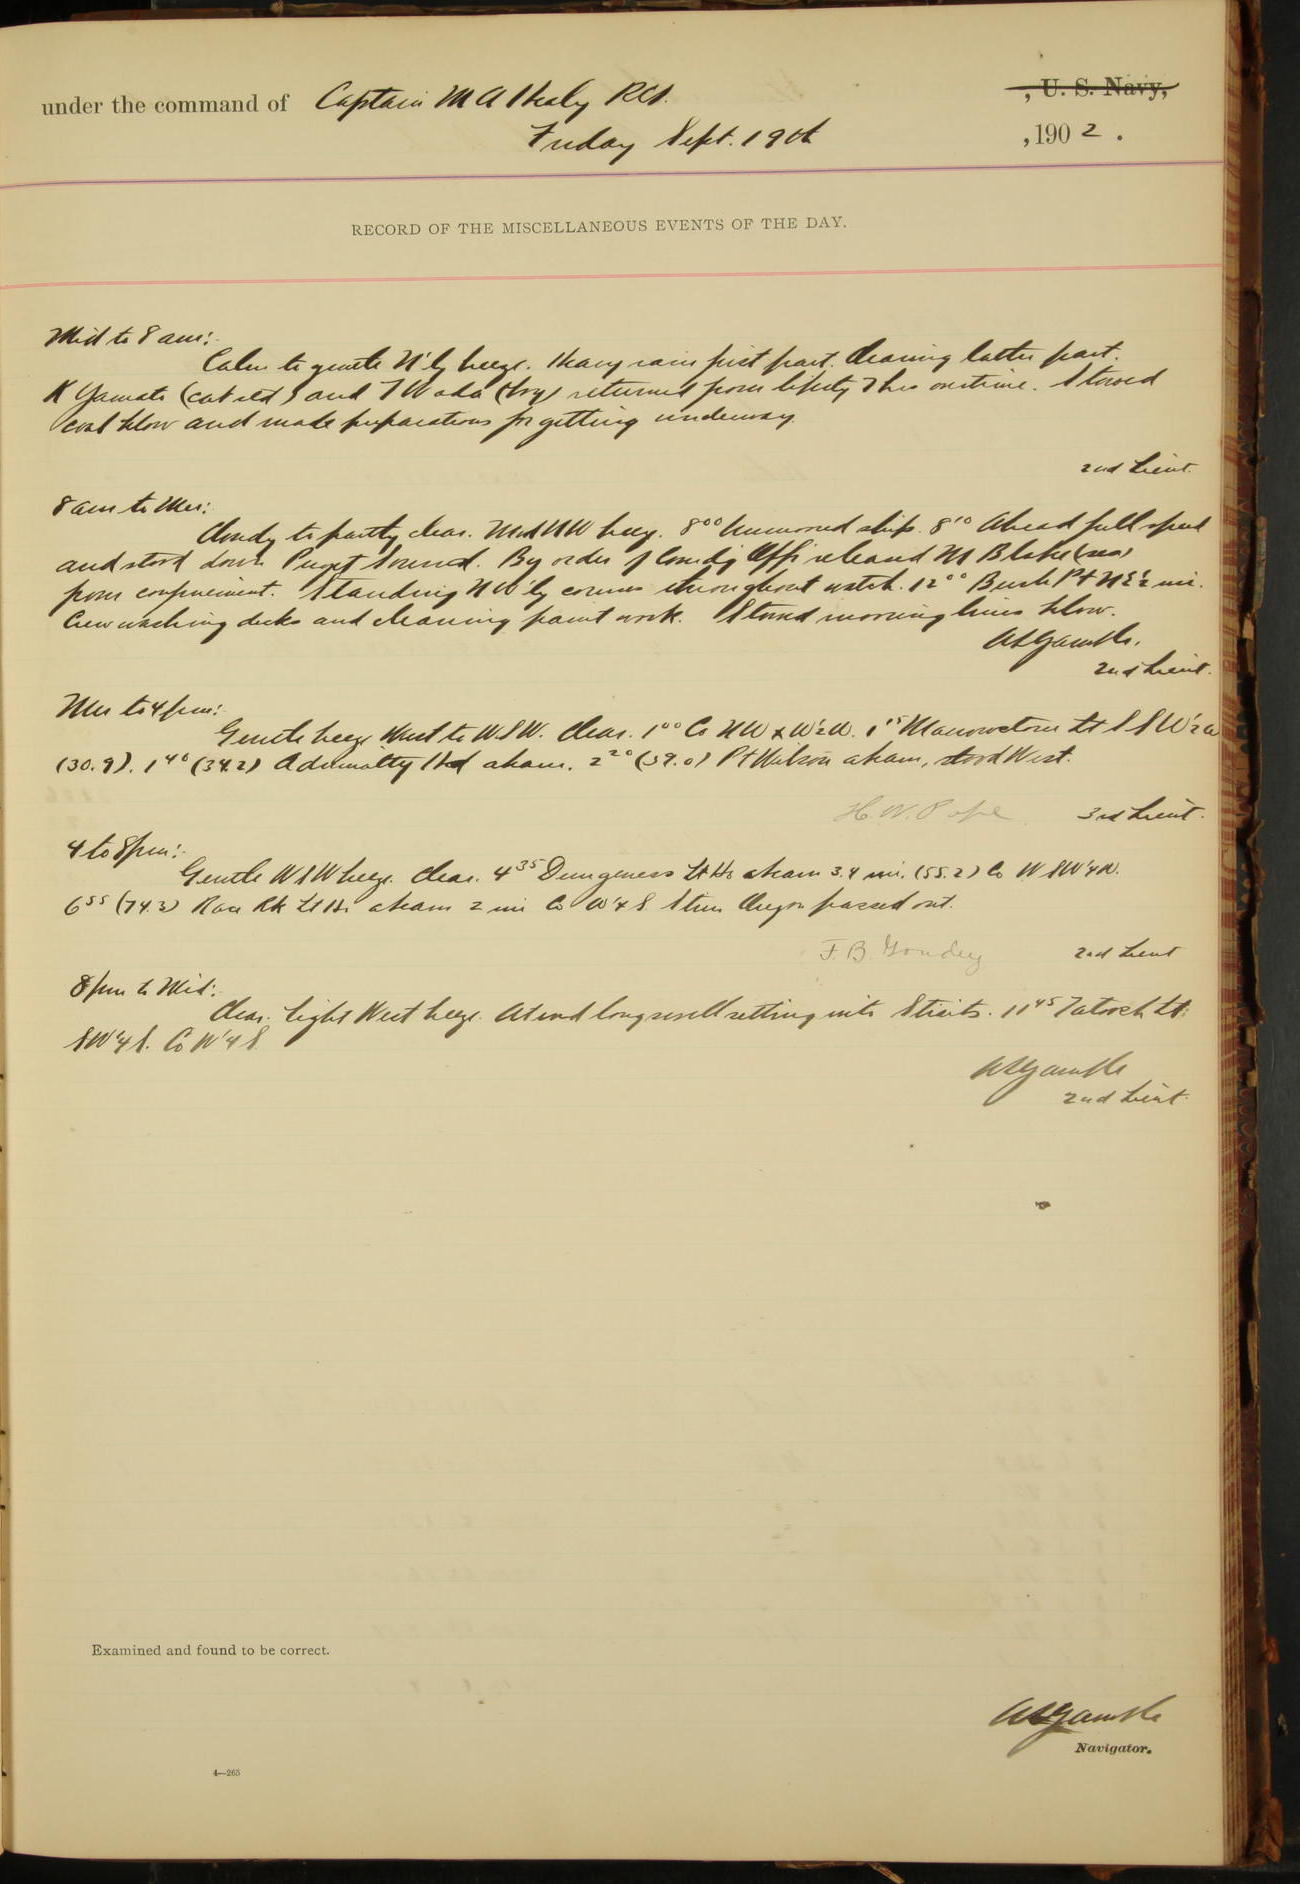 under the command of Captain M A Healy RCS. , U. S. Navy,
Friday Sept. 19th , 190 2 .
RECORD OF THE MISCELLANEOUS EVENTS OF THE DAY.
Mid to 8 am:
Calm to gentle N'ly breeze. Heavy rain first part. Clearing latter part.
K Yamato (cab std) and T Wada (boy) returned from liberty 7 hrs overtime. Stowed
coal below and made preparations for getting underway.
2nd Lieut.
8 am to Mer:
Cloudy to partly clear. Mod NW breeze. 8⁰⁰ Unmoored ship. 8¹⁰ Ahead full speed
and stood down Puget Sound. By order of Comdg Offr released M Blake (sea)
from confinement. Standing NW'ly courses throughout watch. 12⁰⁰ Bush Pt N E ½ mi.
Crew washing decks and cleaning paint work. Stowed mooring lines below.
2nd Lieut.
Mer to 4 pm:
Gentle breeze West to WSW. Clear. 1⁰⁰ Co NW x W½W. 1¹⁵ Marrowstone Lt SSW½W
(30.9). 1⁴⁰ (34.2) Admiralty Hd abeam. 2²⁰ (39.0) Pt Wilson abeam, stood West.
H. W. Pope 3rd Lieut.
4 to 8 pm:
Gentle WSW breeze. Clear. 4³⁵ Dungeness Lt Ho abeam 3.4 mi. (55.2) Co WSW¼W.
6⁵⁵ (74.3) Race Rk Lt Ho abeam 2 mi Co W¼S. Stmr Oregon passed out.
2nd Lieut
8 pm to Mid:
Clear. Light West breeze. At end long swell setting into Straits. 11⁴⁵ Tatoosh Lt:
SW¼S. Co W¼S.
2nd Lieut.
Examined and found to be correct.
Navigator.
4—265